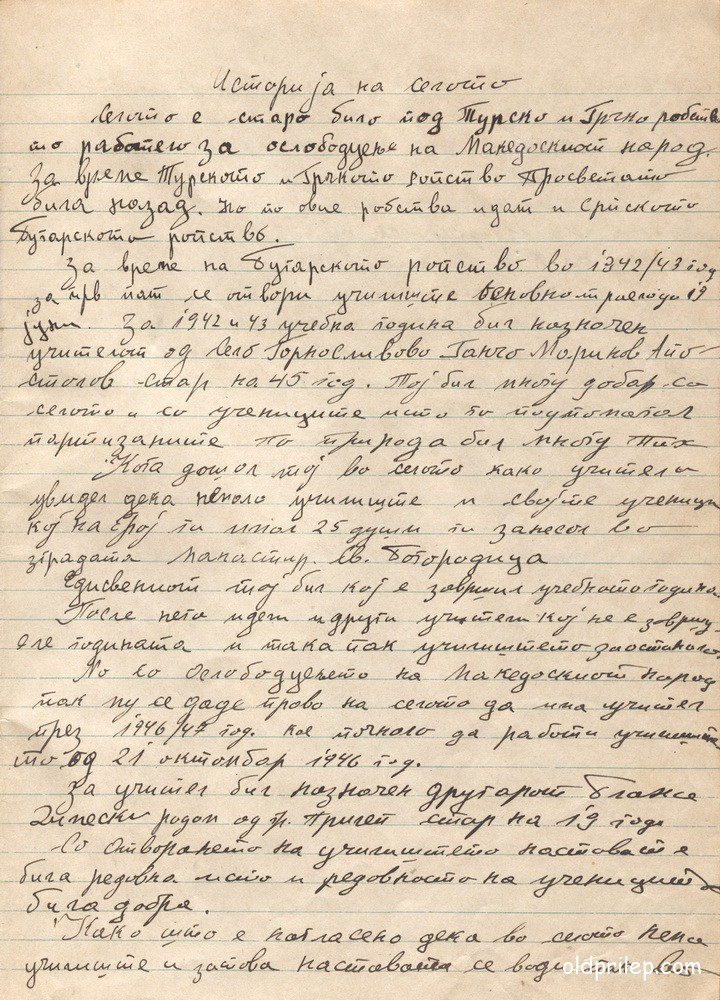 Историја на селото
Селото е старо било под Турско и Грчко робств
то работело за ослободуење на Македоскиот народ.
За време Турското и Грчкото ропство Просветата
била назад. Но по овие робства идат и Српското
Бугарското ропство.
За време на Бугарското ропство во 1942/43 год
за прв пат се отвори училиште основно 19
јуни. За 1942 и 43 учебна година бил назначен
учителот од Село Горносливово Ганчо Маринов Апо-
столов стар на 45 год. Тој бил многу добар со
селото и со учениците исто го подпомагал
партизаните по природа бил многу тих
Кога дошол тој во селото како учител
увидел дека немало училиште и својте ученици
кој на број ги имал 25 души ги занесол во
зградата Манастир. Св. Богородица
Едисвениот тој бил кој е завршил учебната година.
После него идат и други учители кој не е заврш-
еле годината и така пак училиштето заостанало.
Но со Ослободуењето на Македоскиот народ
пак му се даде право на селото да има учител
през 1946/47 год. кое почнало да работи училиш
то од 21 октомбар 1946 год.
За учител бил назначен другарот Благоја
родом од гр. Прилеп стар на 19 годи
Со Отворањето на училиштето наставата е
била редовна исто и редовноста на учениците
била добра.
Како што е нагласено дека во селото нема
училиште и затова наставата се води
oldprilep.com